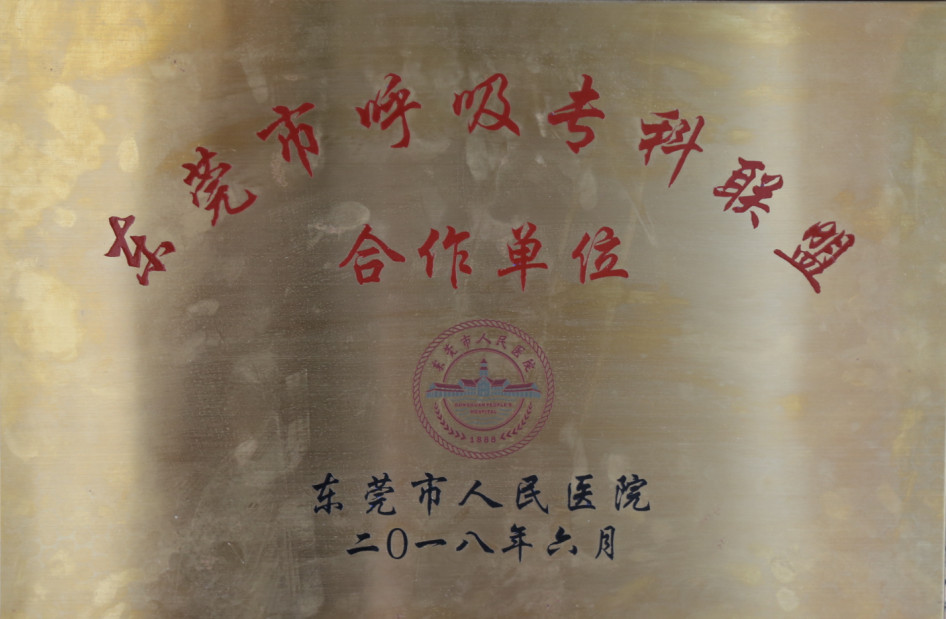 东莞市呼吸专科联盟
合作单位
东莞市人民医院
DONGGUAN PEOPLE'S
HOSPITAL
1888
东莞市人民医院
二〇一八年六月